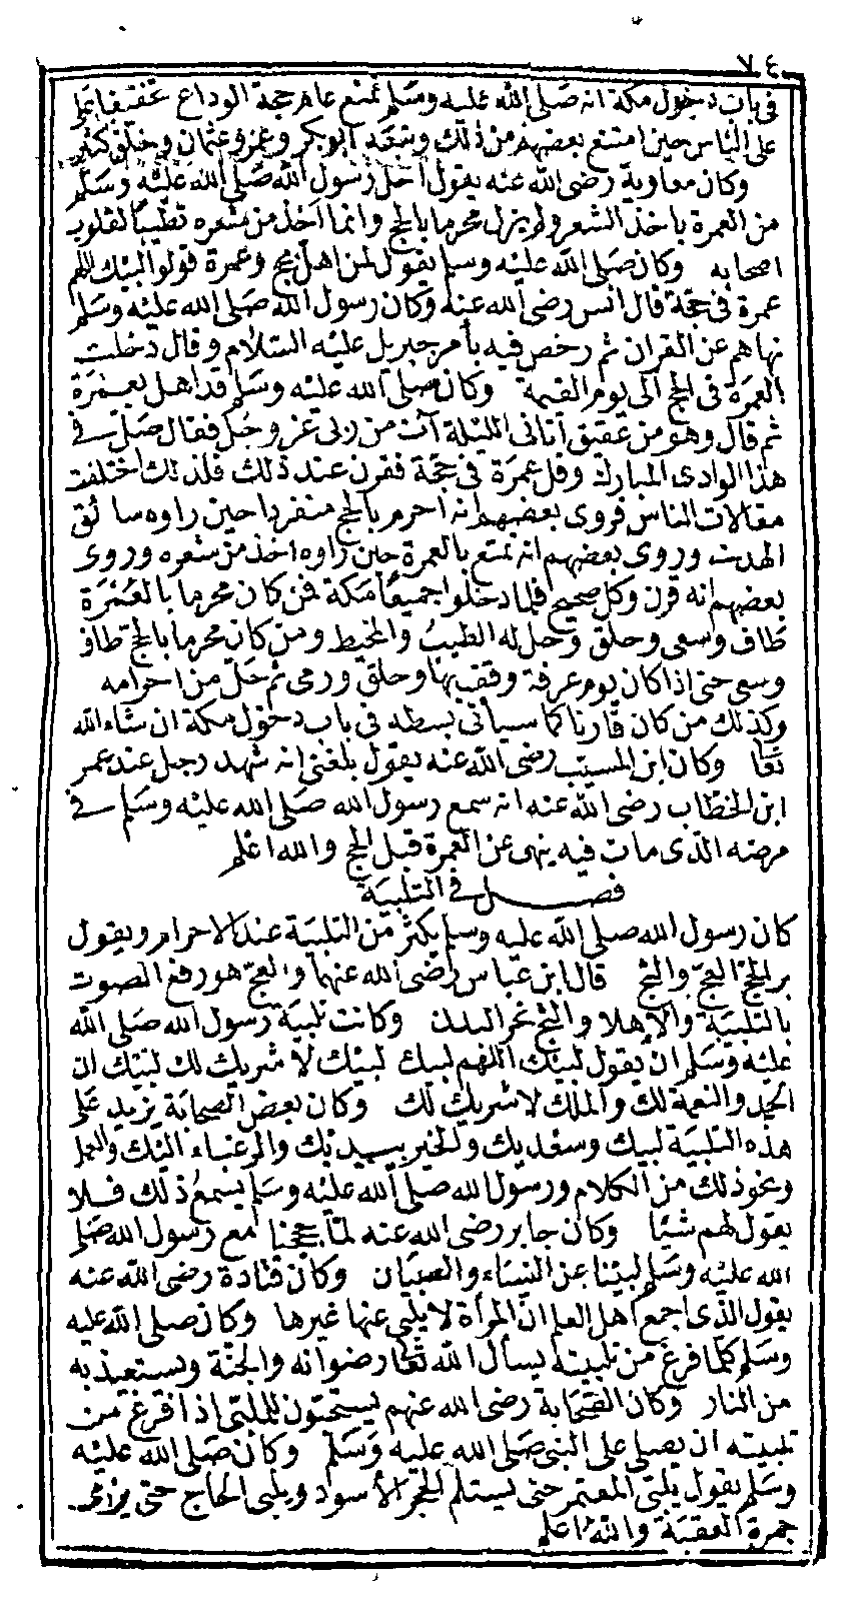 ٧٤
في باب دخول مكة انه صلى الله عليه وسلم تمتع عام حجة الوداع تخفيفا على
على الناس حين امتنع بعضهم من ذلك وتبعه ابو بكر وعمر وعثمان وخلق كثير
وكان معاوية رضى الله عنه يقول احل رسول الله صلى الله عليه وسلم
من العمرة باخذ الشعر ولم يزل محرما بالحج وانما اخذ من شعره تطييبا لقلوب
اصحابه وكان صلى الله عليه وسلم يقول لمن اهل بحج وعمرة قولوا لبيك اللهم
عمرة في حجة قال انس رضى الله عنه وكان رسول الله صلى الله عليه وسلم
نهاهم عن القران ثم رخص فيه بأمر جبريل عليه السلام وقال دخلت
العمرة في الحج الى يوم القيمة وكان صلى الله عليه وسلم قد اهل بعمرة
ثم قال وهو من عقيق أتاني الليلة آت من ربى عز وجل فقال صل في
هذا الوادى المبارك وقل عمرة في حجة فقرن عند ذلك فلذلك اختلفت
مقالات الناس فروى بعضهم انه احرم بالحج منفردا حين راوه سائق
الهدى وروى بعضهم انه تمتع بالعمرة حين راوه اخذ من شعره وروى
بعضهم انه قرن وكل صحيح فلما دخلوا جميعا مكة فمن كان محرما بالعمرة
طاف وسعى وحلق وحل له الطيب والمخيط ومن كان محرما بالحج طاف
وسعى حتى اذا كان يوم عرفة وقف بها وحلق ورمى ثم حل من احرامه
وكذلك من كان قارنا كما سيأتى بسطه في باب دخول مكة ان شاء الله
تعا وكان ابن المسيب رضى الله عنه يقول بلغنى انه شهد رجل عند عمر
ابن الخطاب رضى الله عنه انه سمع رسول الله صلى الله عليه وسلم في
مرضه الذى مات فيه ينهى عن العمرة قبل الحج والله اعلم
فصل في التلبية
كان رسول الله صلى الله عليه وسلم يكثر من التلبية عند الاحرام ويقول
بر الحج العج والثج قال ابن عباس رضى الله عنهما والعج هو رفع الصوت
بالتلبية والإهلال والثج نحر البدن وكانت تلبية رسول الله صلى الله
عليه وسلم ان يقول لبيك اللهم لبيك لبيك لا شريك لك لبيك ان
الحمد والنعمة لك والملك لا شريك لك وكان بعض الصحابة يزيد على
هذه التلبية لبيك وسعديك والخير بيديك والرغباء اليك والعمل
ونحو ذلك من الكلام ورسول الله صلى الله عليه وسلم يسمع ذلك فلا
يقول لهم شيئا وكان جابر رضى الله عنه لما حججنا مع رسول الله صلى
الله عليه وسلم لبينا عن النساء والصبيان وكان قتادة رضى الله عنه
يقول الذى اجمع اهل العلم ان المرأة لا يلبى عنها غيرها وكان صلى الله عليه
وسلم كلما فرغ من تلبيته يسأل الله تعا رضوانه والجنة ويستعيذ به
من النار وكان الصحابة رضى الله عنهم يستحبون للملبى اذا فرغ من
تلبيته ان يصلى على النبى صلى الله عليه وسلم وكان صلى الله عليه
وسلم يقول يلبى المعتمر حتى يستلم الحجر الأسود ويلبى الحاج حتى يرمى
جمرة العقبة والله اعلم